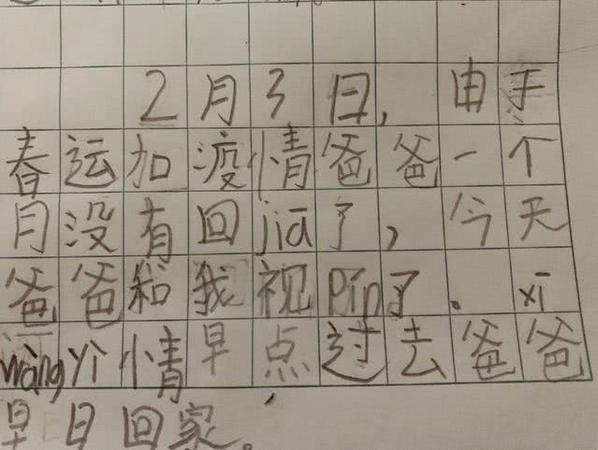 2月3日,由手
春运加疫情爸爸一个
月没有回jiā了,今天
爸爸和我视pín了。xī
wàngyì情早点过去,爸爸
早日回家。